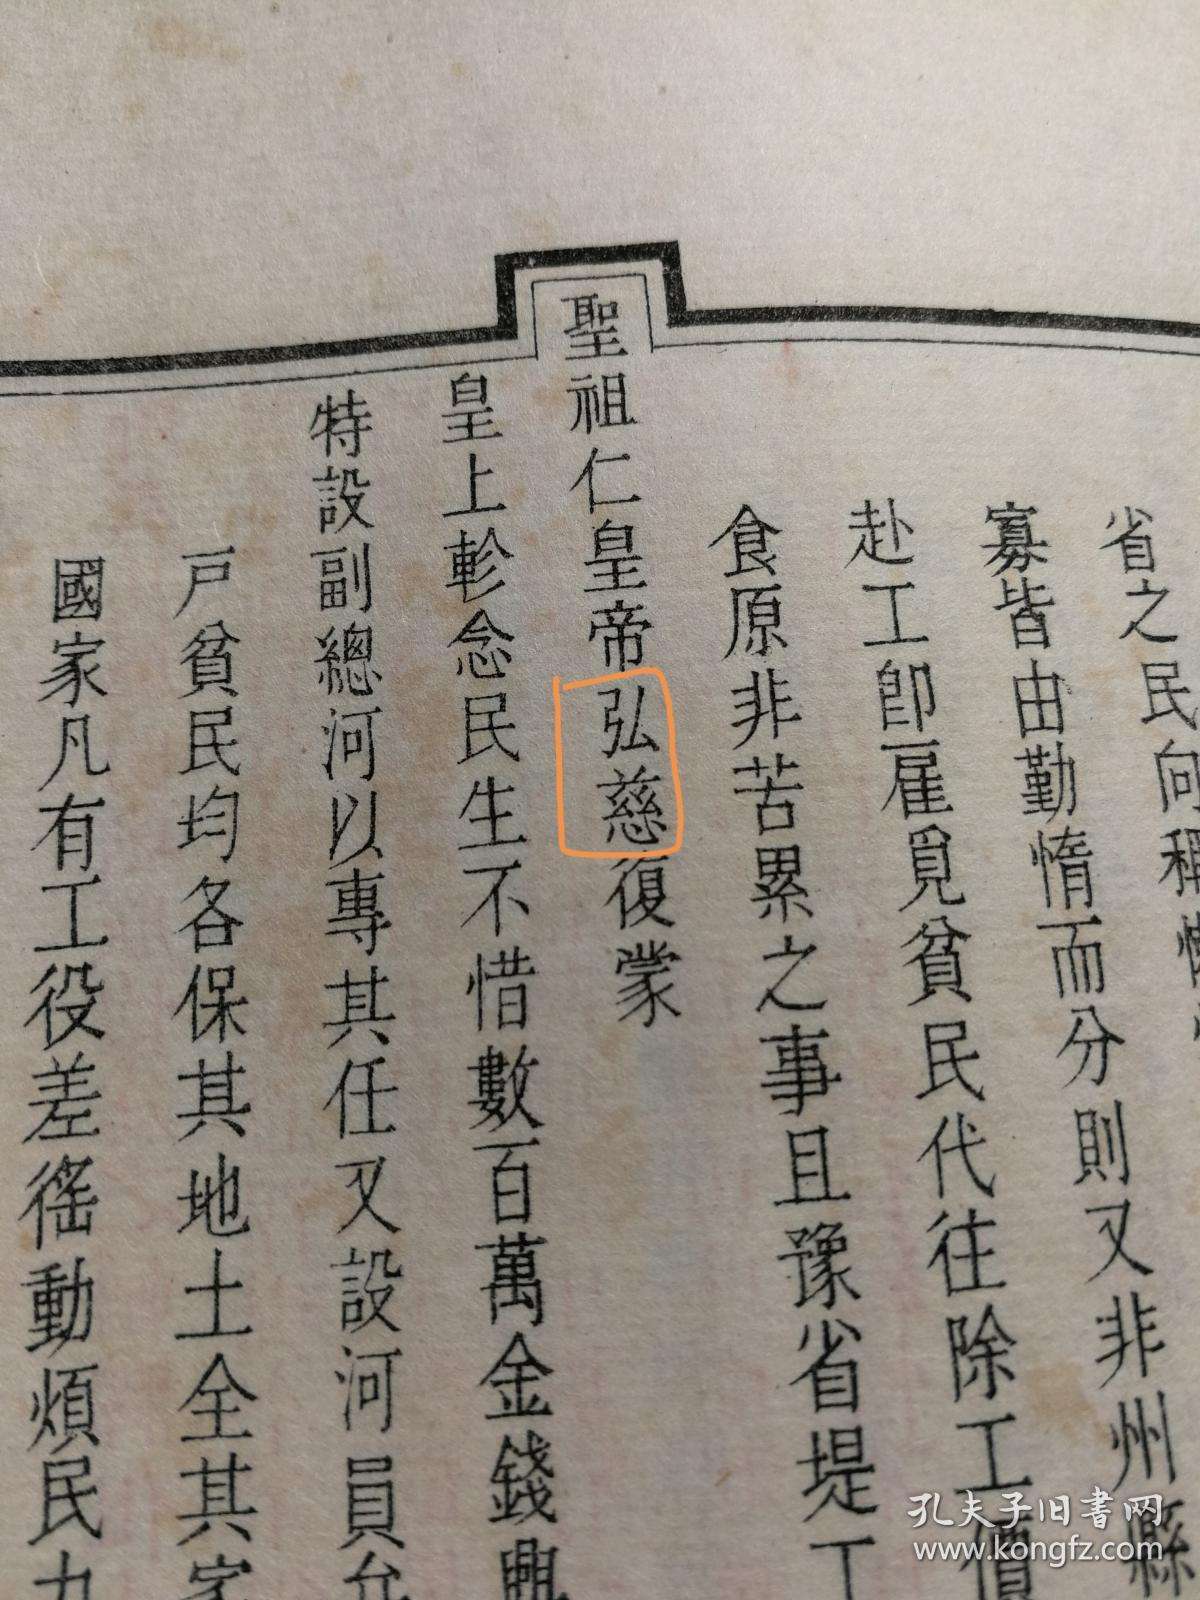 省之民向稱
寡皆由勤惰而分則又非州縣
赴工卽雇覓貧民代往除工價
食原非苦累之事且豫省堤工
聖祖仁皇帝弘慈復蒙
皇上軫念民生不惜數百萬金錢興
特設副總河以專其任又設河員分
戶貧民均各保其地土全其家
國家凡有工役差徭動煩民力
孔夫子旧書网
www.kongfz.com